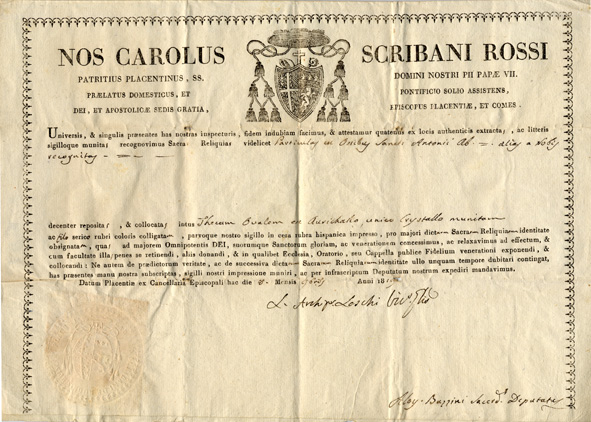 NOS CAROLUS SCRIBANI ROSSI
PATRITIUS PLACENTINUS, SS. DOMINI NOSTRI PII PAPÆ VII.
PRÆLATUS DOMESTICUS, ET PONTIFICIO SOLIO ASSISTENS,
DEI, ET APOSTOLICÆ SEDIS GRATIA, EPISCOPUS PLACENTIÆ, ET COMES.
Universis, & singulis præsentes has nostras inspecturis, fidem indubiam facimus, & attestamur ex locis authenticis extractas, ac litteris
sigilloque munitas recognovimus Sacras Reliquias videlicet Particulas ex Ossibus Sancti Antonii Ab. alias a Nobis
recognitas
decenter repositas, & collocatas intus Thecam Ovalem ex Aurichalco unico Crystallo munitam
ac filo serico rubri coloris colligatam, parvoque nostro sigillo in cera rubra hispanica impresso, pro majori dictarum Sacrarum Reliquiarum identitate
obsignatas, quas ad majorem Omnipotentis DEI, suorumque Sanctorum gloriam, ac venerationem concessimus, ac relaxavimus ad effectum, &
cum facultate illas penes se retinendi, aliis donandi, & in qualibet Ecclesia, Oratorio, seu Cappella publice Fidelium venerationi exponendi, &
collocandi: Ne autem de prædictorum veritate, ac de successiva dictarum Sacrarum Reliquiarum identitate ullo unquam tempore dubitari contingat,
has præsentes manu nostra subscriptas, sigilli nostri impressione muniri, ac per infrascriptum Deputatum nostrum expediri mandavimus.
Datum Placentiæ ex Cancellaria Episcopali hac die 8. Mensis Anni 18
L. Archip. Loschi
Aloy. Bazzini Sacerd. Deputatus